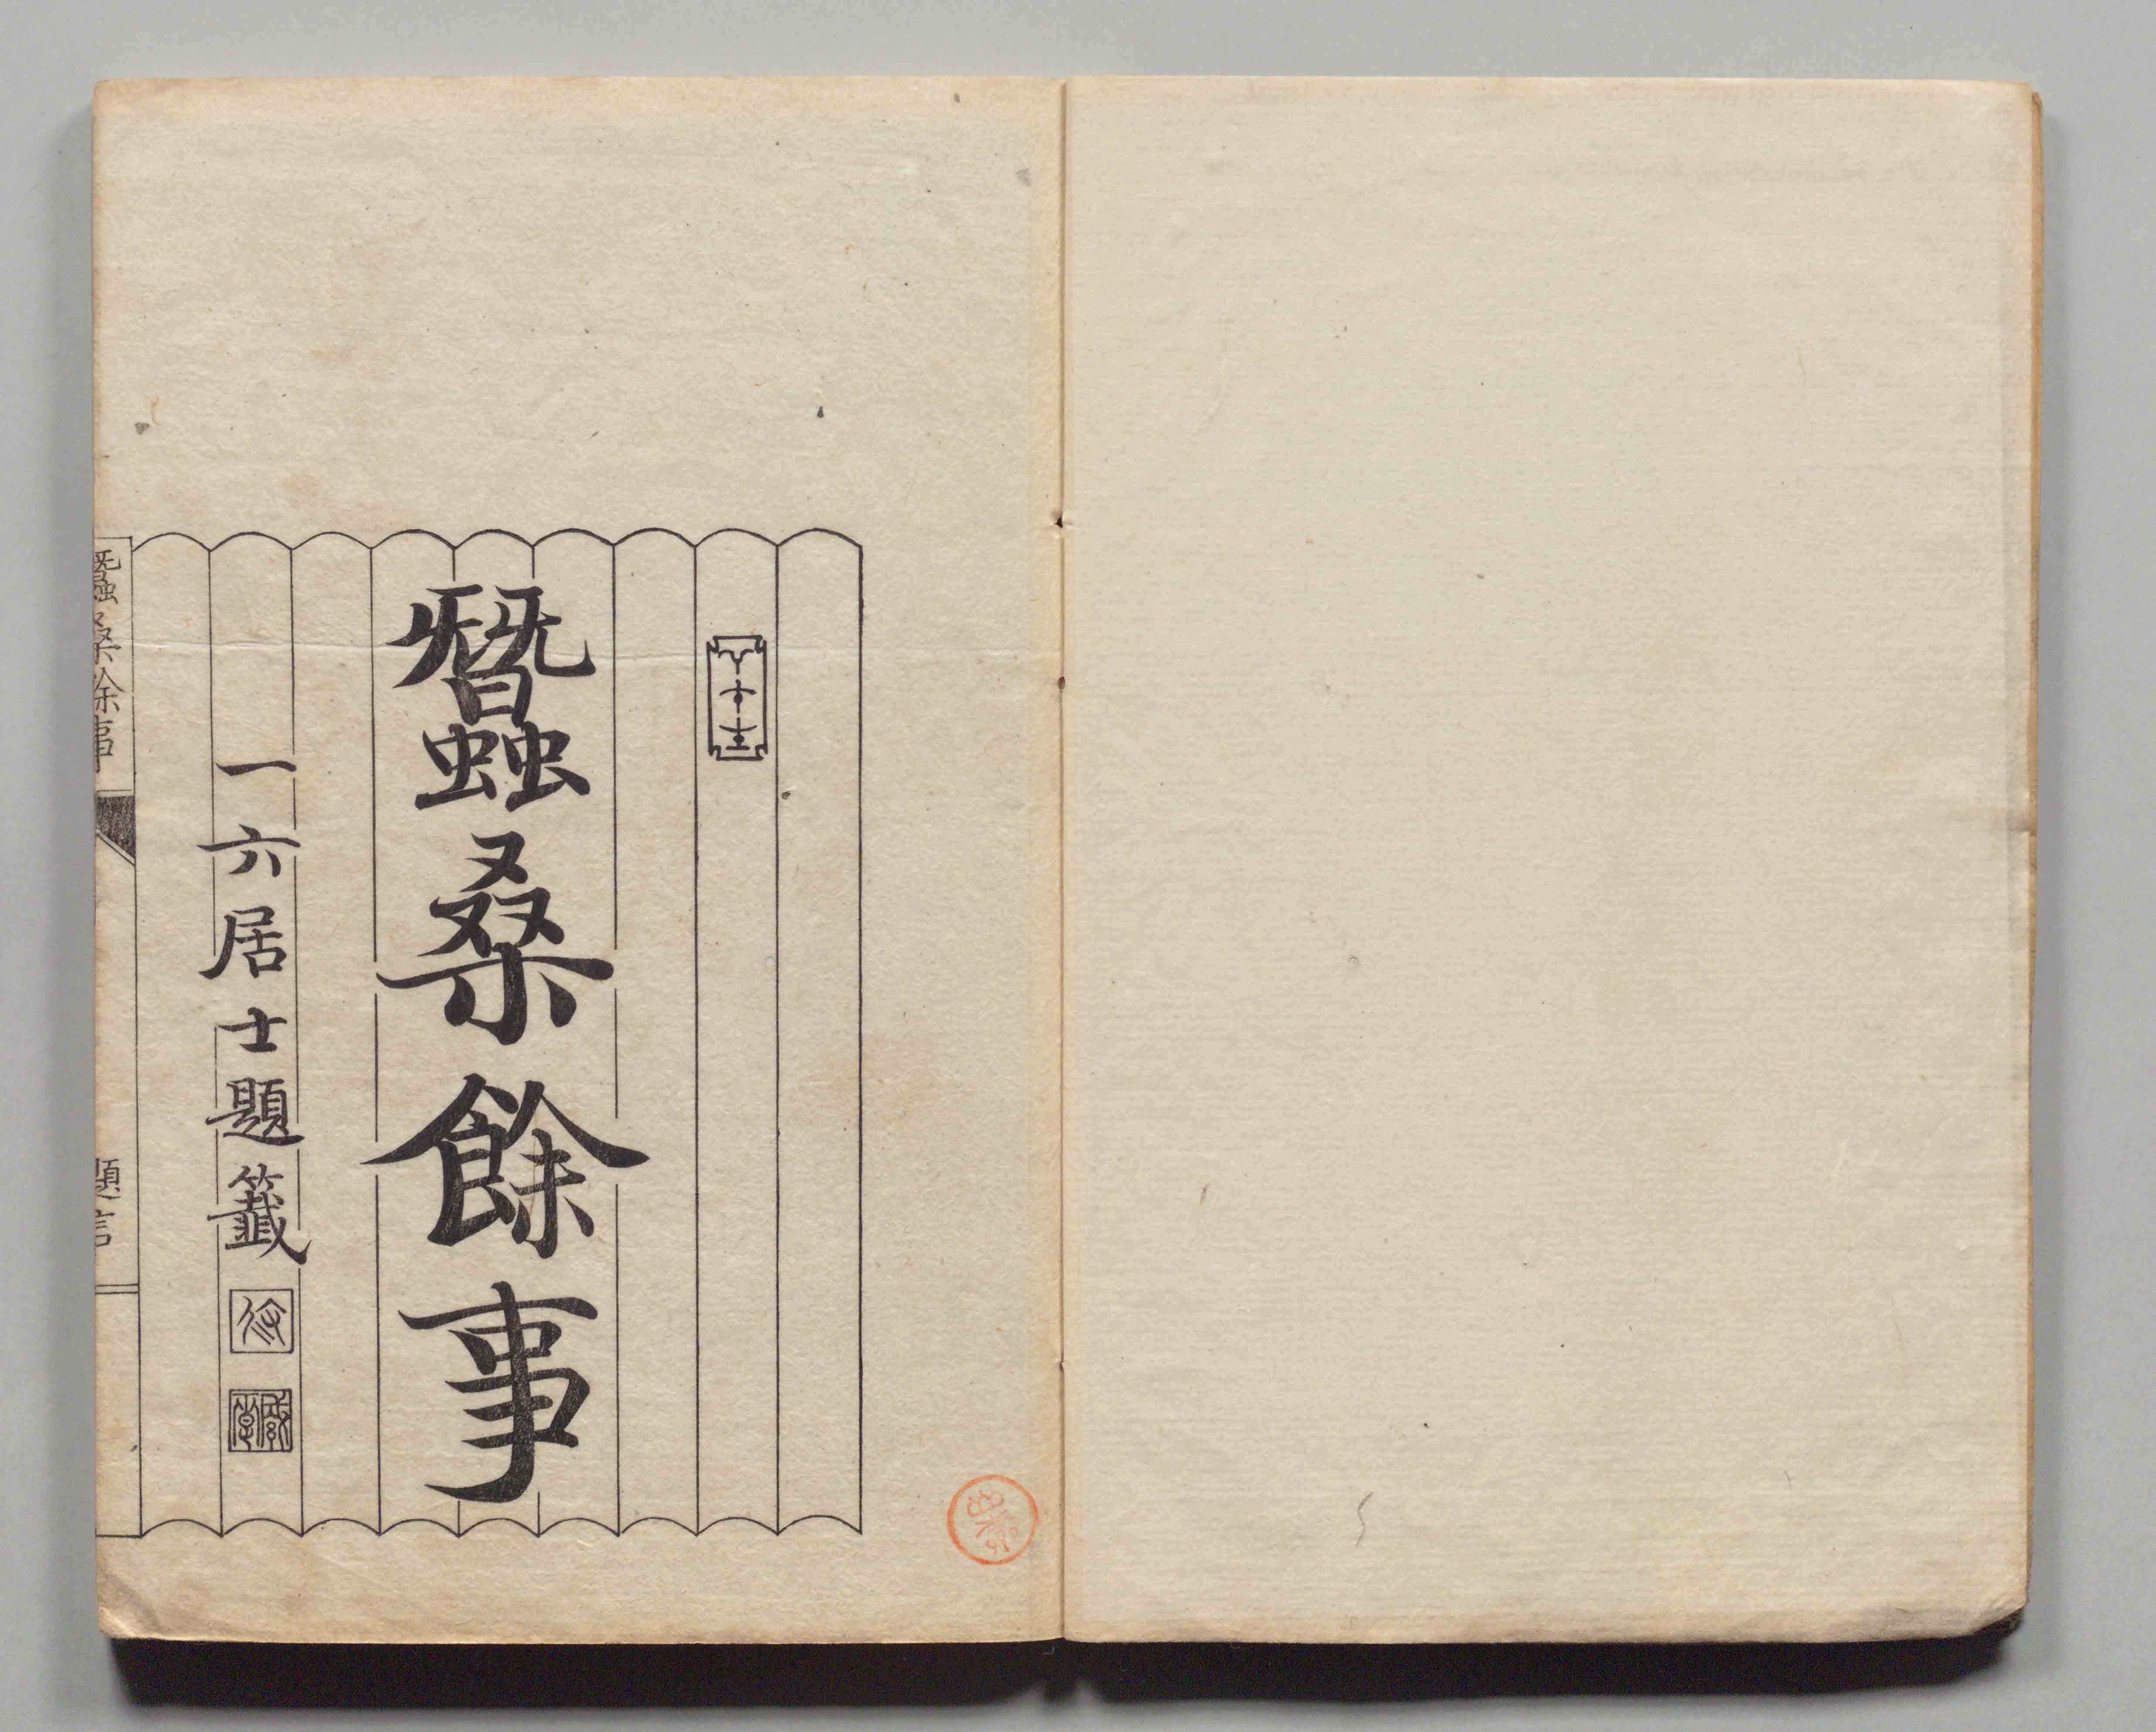 蠶桑餘事
一六居士題籤
蠶桑餘事
題言